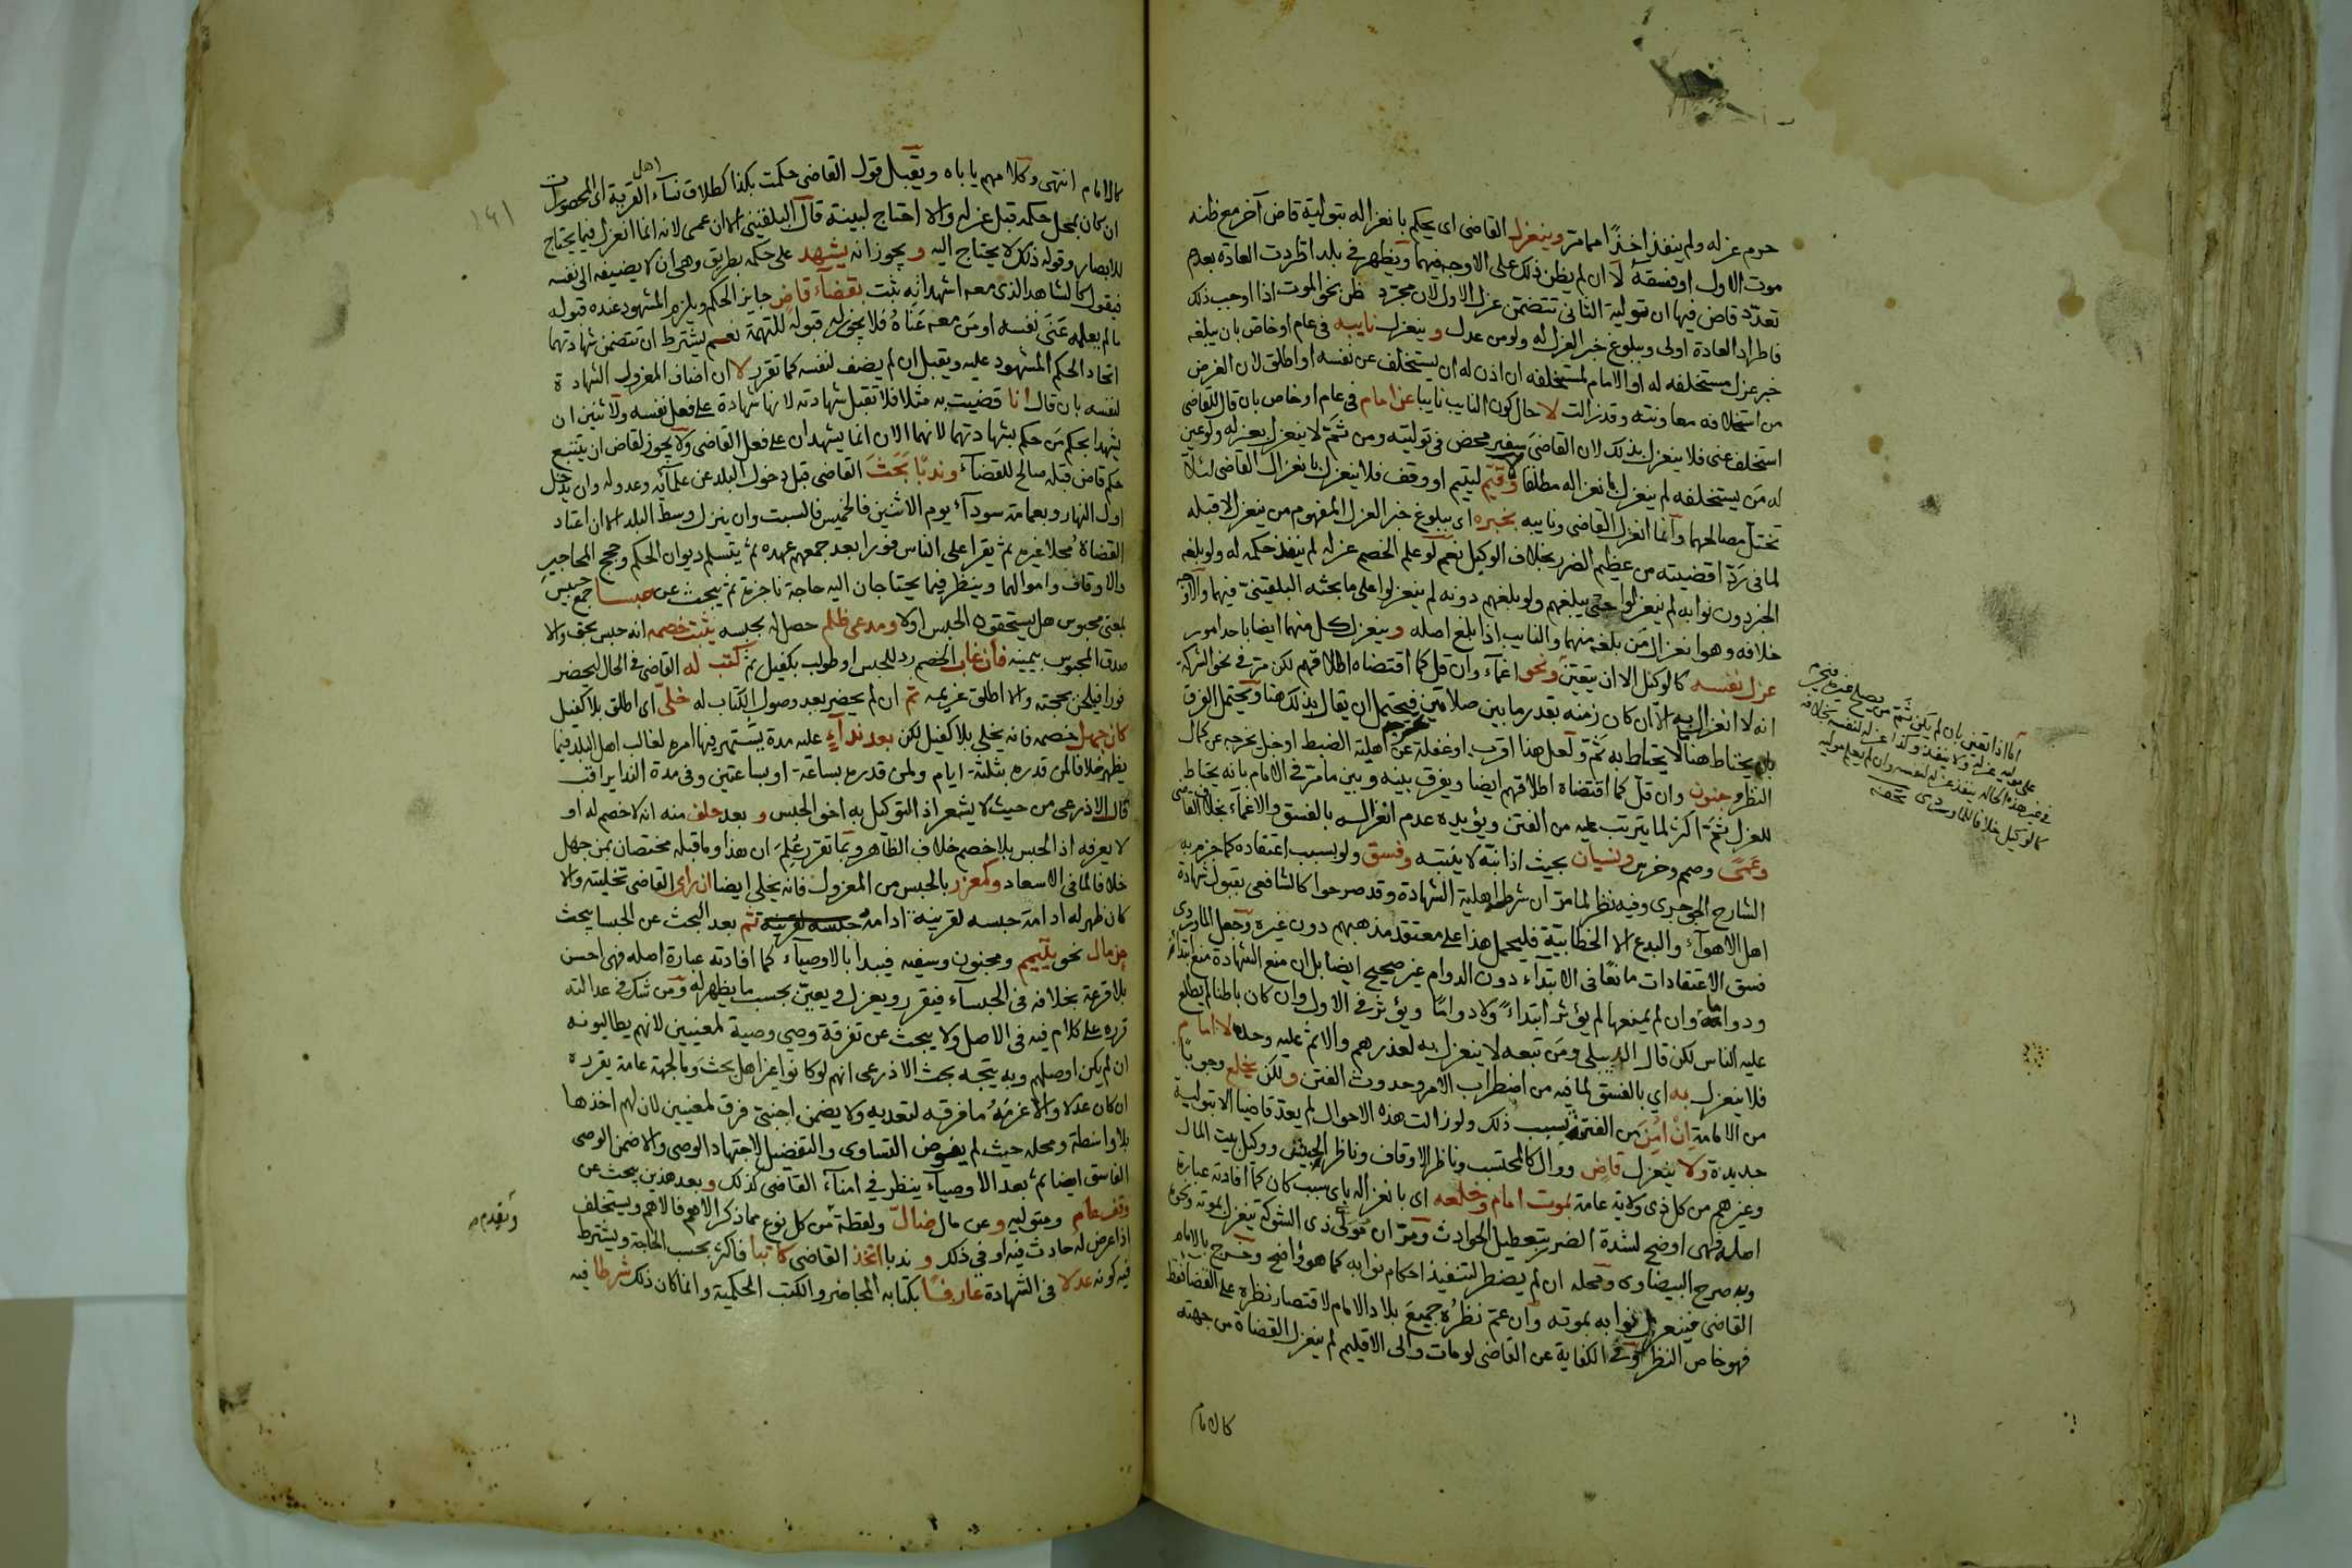 حرم عزله ولم ينفذ اخذا مما مر وينعزل القاضى اى يحكم بانعزاله بتولية قاض آخر مع ظنه
موت الاول او فسقه لا ان لم يظن ذلك على الاوجه فيهما ويظهر فى بلد اطردت العادة بعدم
تعدد قاض فيها ان تولية الثانى تتضمن عزل الاول لان مجرد ظن نحو الموت اذا اوجب ذلك
فاطراد العادة اولى وببلوغ خبر العزل له ولو من عدل وينعزل نايبه فى عام او خاص بان يبلغه
خبر عزل مستخلفه له او الامام لمستخلفه ان اذن له ان يستخلف عن نفسه او اطلق لان الغرض
من استخلافه معاونته وقد زالت لا حال كون النايب نايبا عن امام فى عام او خاص بان قال للقاضى
استخلف عنى فلا ينعزل بذلك لان القاضى سفير محض فى توليته ومن ثم لا ينعزل بعزله ولو عين
له من يستخلفه لم ينعزل بانعزاله مطلقا ولا قيم ليتيم او وقف فلا ينعزل بانعزال القاضى لئلا
تختل مصالحهما وانما انعزل القاضى ونايبه بخبره اى ببلوغ خبر العزل المفهوم من ينعزل لا قبله
لما فى رد اقضيته من عظيم الضرر بخلاف الوكيل نعم لو علم الخصم عزله لم ينفذ حكمه له ولو بلغه
الخبر دون نوابه لم ينعزلوا حتى يبلغهم ولو بلغهم دونه لم ينعزلوا على ما بحثه البلقينى فيهما والاوجه
خلافه وهو انعزال من بلغه منهما والنايب اذا بلغ اصله وينعزل كل منهما ايضا باحد امور
عزل نفسه كالوكيل الا ان يتعين ونحو اغماء وان قل كما اقتضاه اطلاقهم لكن مر فى نحو الشركة
انه لا انعزال به الا ان كان زمنه بقدر ما بين صلاتين فيحتمل ان يقال بذلك هنا ويحتمل الفرق
بانه يحتاط هنا ما لا يحتاط به ثم ولعل هنا اقرب او غفلة عن اهلية الضبط او خبل يخرجه عن كمال
النظر وجنون وان قل كما اقتضاه اطلاقهم ايضا ويفرق بينه وبين ما مر فى الامام بانه يحتاط
للعزل ثم اكثر لما يترتب عليه من الفتن ويؤيده عدم انعزاله بالفسق والاغماء بخلاف القاضى
وعمى وصمم وخرس ونسيان بحيث اذا نبه لا يتنبه وفسق ولو بسبب اعتقاده كما جزم به
الشارح الجوجرى وفيه نظر لما مر ان شرطه اهلية الشهادة وقد صرحوا كالشافعى بقبول شهادة
اهل الاهواء والبدع الا الخطابية فليحمل هذا على معتقد مذهبهم دون غيره وجعل الماوردى
فسق الاعتقادات مانعا فى الابتداء دون الدوام غير صحيح ايضا بل ان منع الشهادة منع ابتداء
ودواما وان لم يمنعها لم يؤثر ابتداء ولا دواما ويؤثر فى الاول وان كان باطنا لم يطلع
عليه الناس لكن قال الدبيلى ومن تبعه لا ينعزل به لعذرهم والاثم عليه وحده لا امام
فلا ينعزل به اي بالفسق لما فيه من اضطراب الامر وحدوث الفتن ولكن يخلع وجوبا
من الامامة ان امن من الفتنة بسبب ذلك ولو زالت هذه الاحوال لم يعد قاضيا الا بتولية
جديدة ولا ينعزل قاض ووال كالمحتسب وناظر الاوقاف وناظر الجيش ووكيل بيت المال
وغيرهم من كل ذى ولاية عامة لموت امام وخلعه اى بانعزاله باى سبب كان كما افادته عبارة
اصله فهى اوضح لشدة الضرر بتعطيل الحوادث ومر ان مولى ذى الشوكة ينعزل بموته ونحوه
وبه صرح البيضاوى ومحله ان لم يضطر لتنفيذ احكام نوابه كما هو واضح وخرج بالامام
القاضى فينعزل نوابه بموته وان عم نظره جميع بلاد الامام لاقتصار نظره على القضا فقط
فهو خاص النظر وفى الكفاية عن القاضى لو مات والى الاقليم لم ينعزل القضاة من جهته
كالامام
اما اذا تعين بان لم يكن ثم من يصلح غيره فيحرم
على موليه عزله ولا ينفذ وكذا عزله لنفسه بخلافه
فى غير هذه الحالة ينفذ عزله لنفسه وان لم يعلم موليه
كالوكيل خلافا للماوردى تحفه
كالامام انتهى وكلامهم ياباه ويقبل قول القاضى حكمت بكذا كطلاق نساء اهل القرية اى المحصورات
ان كان بمحل حكمه قبل عزله والا احتاج لبينة قال البلقينى الا ان عمى لانه انما انعزل فيما يحتاج
للابصار وقوله ذلك لا يحتاج اليه ويجوز انه يشهد على حكمه بطريق وهى ان لا يضيفه الى نفسه
فيقول كالشاهد الذى معه اشهد انه ثبت بقضاء قاض جايز الحكم ويلزم المشهود عنده قبوله
ما لم يعلمه عنى نفسه او من معه عناه فلا يجوز له قبوله للتهمة نعم يشترط ان تتضمن شهادتهما
اتحاد الحكم المشهود عليه ويقبل ان لم يضف لنفسه كما تقرر لا ان اضاف المعزول الشهادة
لنفسه بان قال انا قضيت به مثلا فلا تقبل شهادته لانها شهادة على فعل نفسه ولاثنين ان
يشهدا بحكم من حكم بشهادتهما لانهما الان انما يشهدان على فعل القاضى ولا يجوز لقاض ان يتتبع
حكم قاض قبله صالح للقضاء وندبا بحث القاضى قبل دخول البلد عن علمائه وعدوله وان يدخل
اول النهار وبعمامة سوداء يوم الاثنين فالخميس فالسبت وان ينزل وسط البلد الا ان اعتاد
القضاة محلا غيره ثم يقرا على الناس فورا بعد جمعهم عهده ثم يتسلم ديوان الحكم وحجج المحاجير
والاوقاف واموالهما وينظر فيما يحتاجان اليه حاجة ناجزة ثم يبحث عن حبسا جمع حبيس
بمعنى محبوس هل يستحقون الحبس اولا ومدعى ظلم حصل له بحبسه يثبت خصمه انه حبس بحق والا
صدق المحبوس بيمينه فان غاب الخصم رد للحبس او طولب بكفيل ثم كتب له القاضى فى الحال ليحضر
فورا فيلحن بحجته والا اطلق غريمه ثم ان لم يحضر بعد وصول الكتاب له خلى اى اطلق بلا كفيل
كان جهل خصمه فانه يخلى بلا كفيل لكن بعد نداء عليه مدة يشتهر فيها امره لغالب اهل البلد فيما
يظهر خلافا لمن قدره بثلثة ايام ولمن قدره بساعة او بساعتين وفى مدة الندا يراقب
قال الاذرعى من حيث لا يشعر اذ التوكيل به اخو الحبس وبعد حلف منه انه لا خصم له او
لا يعرفه اذ الحبس بلا خصم خلاف الظاهر وبما تقرر علم ان هذا وما قبله مختصان بمن جهل
خلافا لما فى الاسعاد وكمعزر بالحبس من المعزول فانه يخلى ايضا ان راى القاضى تخليته والا
كان ظهر له ادامة حبسه لقرينة ادامه ثم بعد البحث عن الحبسا يبحث
عن مال نحو يتيم ومجنون وسفيه فيبدا بالاوصياء كما افادته عبارة اصله فهى احسن
بلا قرعة بخلافه فى الحبساء فيقرر ويعزل ويعين بحسب ما يظهر له ومن شك فى عدالته
قرره على كلام فيه فى الاصل ولا يبحث عن تفرقة وصي وصية لمعينين لانهم يطالبونه
ان لم يكن اوصلهم وبه يتجه بحث الاذرعى انهم لو كانوا غير اهل بحث وما لجهة عامة يقرره
ان كان عدلا والا غرمه ما فرقه لتعديه ولا يضمن اجنبى فرق لمعينين لان لهم اخذها
بلا واسطة ومحله حيث لم يفوض التساوى والتفضيل لاجتهاد الوصى والا ضمن الوصى
الفاسق ايضا ثم بعد الاوصياء ينظر فى امناء القاضى كذلك وبعد هذين يبحث عن
وقف عام ومتوليه وعن مال ضال ولقطة من كل نوع مما ذكر الاهم فالاهم ويستخلف
اذا عرض له حادث فيه او فى ذلك وندبا اتخذ القاضى كاتبا فاكثر بحسب الحاجة ويشترط
فيه كونه عدلا فى الشهادة عارفا بكتابه المحاضر والكتب الحكمية وانما كان ذلك شرطا فيه
ويقدم
١٤١